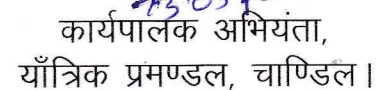 कार्यपालक अभियंता,
याँत्रिक प्रमण्डल, चाण्डिल।